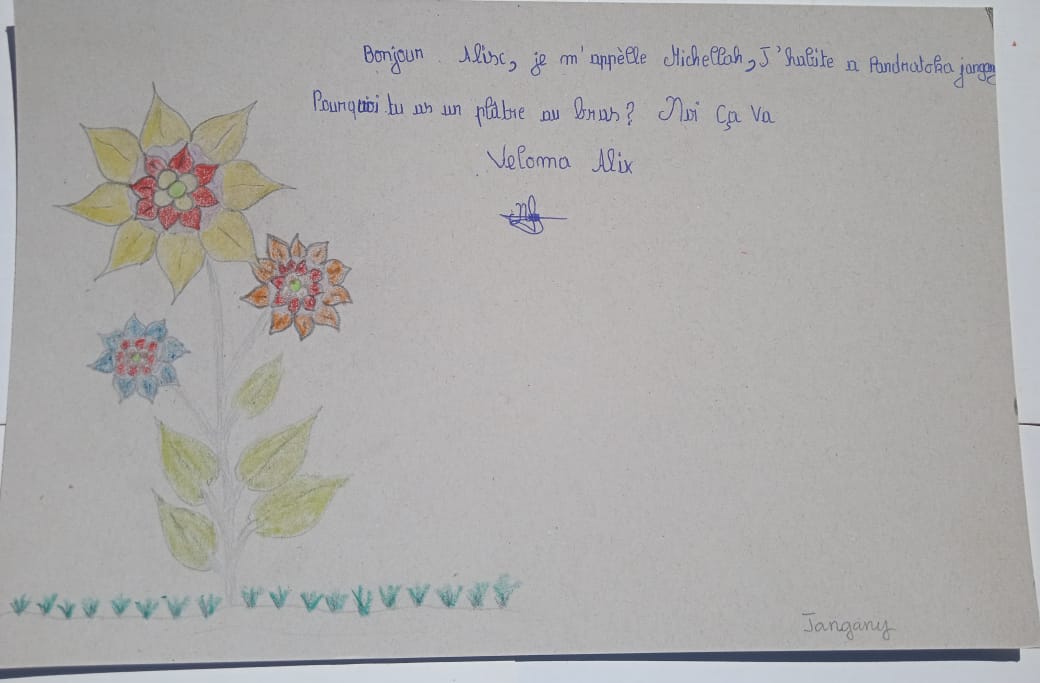 Bonjour Alix, je m'appèlle Michellah, J'habite a Pandriatoka jangany
Pourquoi tu as un plâtre au bras? Moi Ça Va
Veloma Alix
Jangany